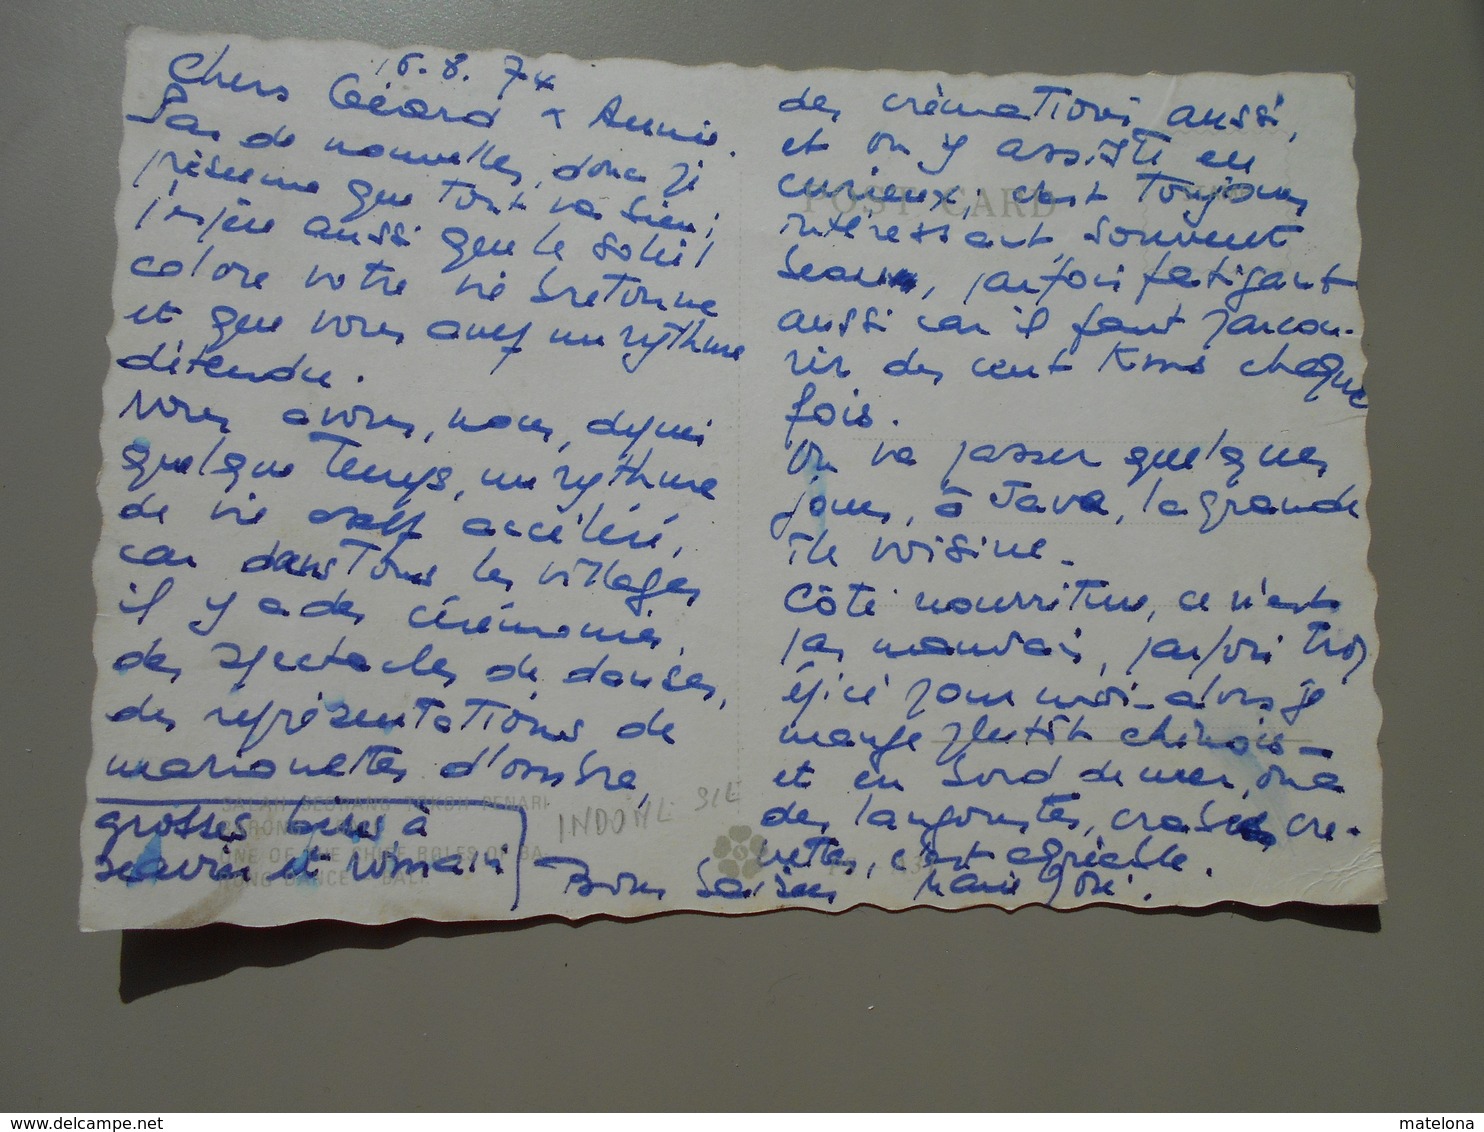 16.8.74
Chers Gérard & Annie.
Pas de nouvelles, donc je
présume que tout va bien ;
j'espère aussi que le soleil
colore votre vie bretonne
et que vous avez un rythme
détendu.
Nous avons, nous, depuis
quelque temps, un rythme
de vie accéléré,
car dans tous les villages
il y a des cérémonies,
des spectacles de danses,
des représentations de
marionettes d'ombre,
des crémations aussi,
et on y assiste en
curieux ; c'est toujours
intéressant, souvent
beau, parfois fatigant
aussi car il faut parcou-
rir des cent kms chaque
fois.
On va passer quelques
jours, à Java, la grande
île voisine -
Côté nourriture, ce n'est
pas mauvais, parfois trop
épicé pour moi - alors je
mange plutôt chinois -
et en bord de mer, on a
des langoustes, crabes cre-
vettes, c'est agréable.
Bons baisers Marie José.
grosses bises à
et Romain
POST CARD
SALAH SEORANG TOKOH PENARI
BARONG
ONE OF THE CHIEF ROLES OF BA-
RONG DANCE BALI.
INDONESIE
matelona